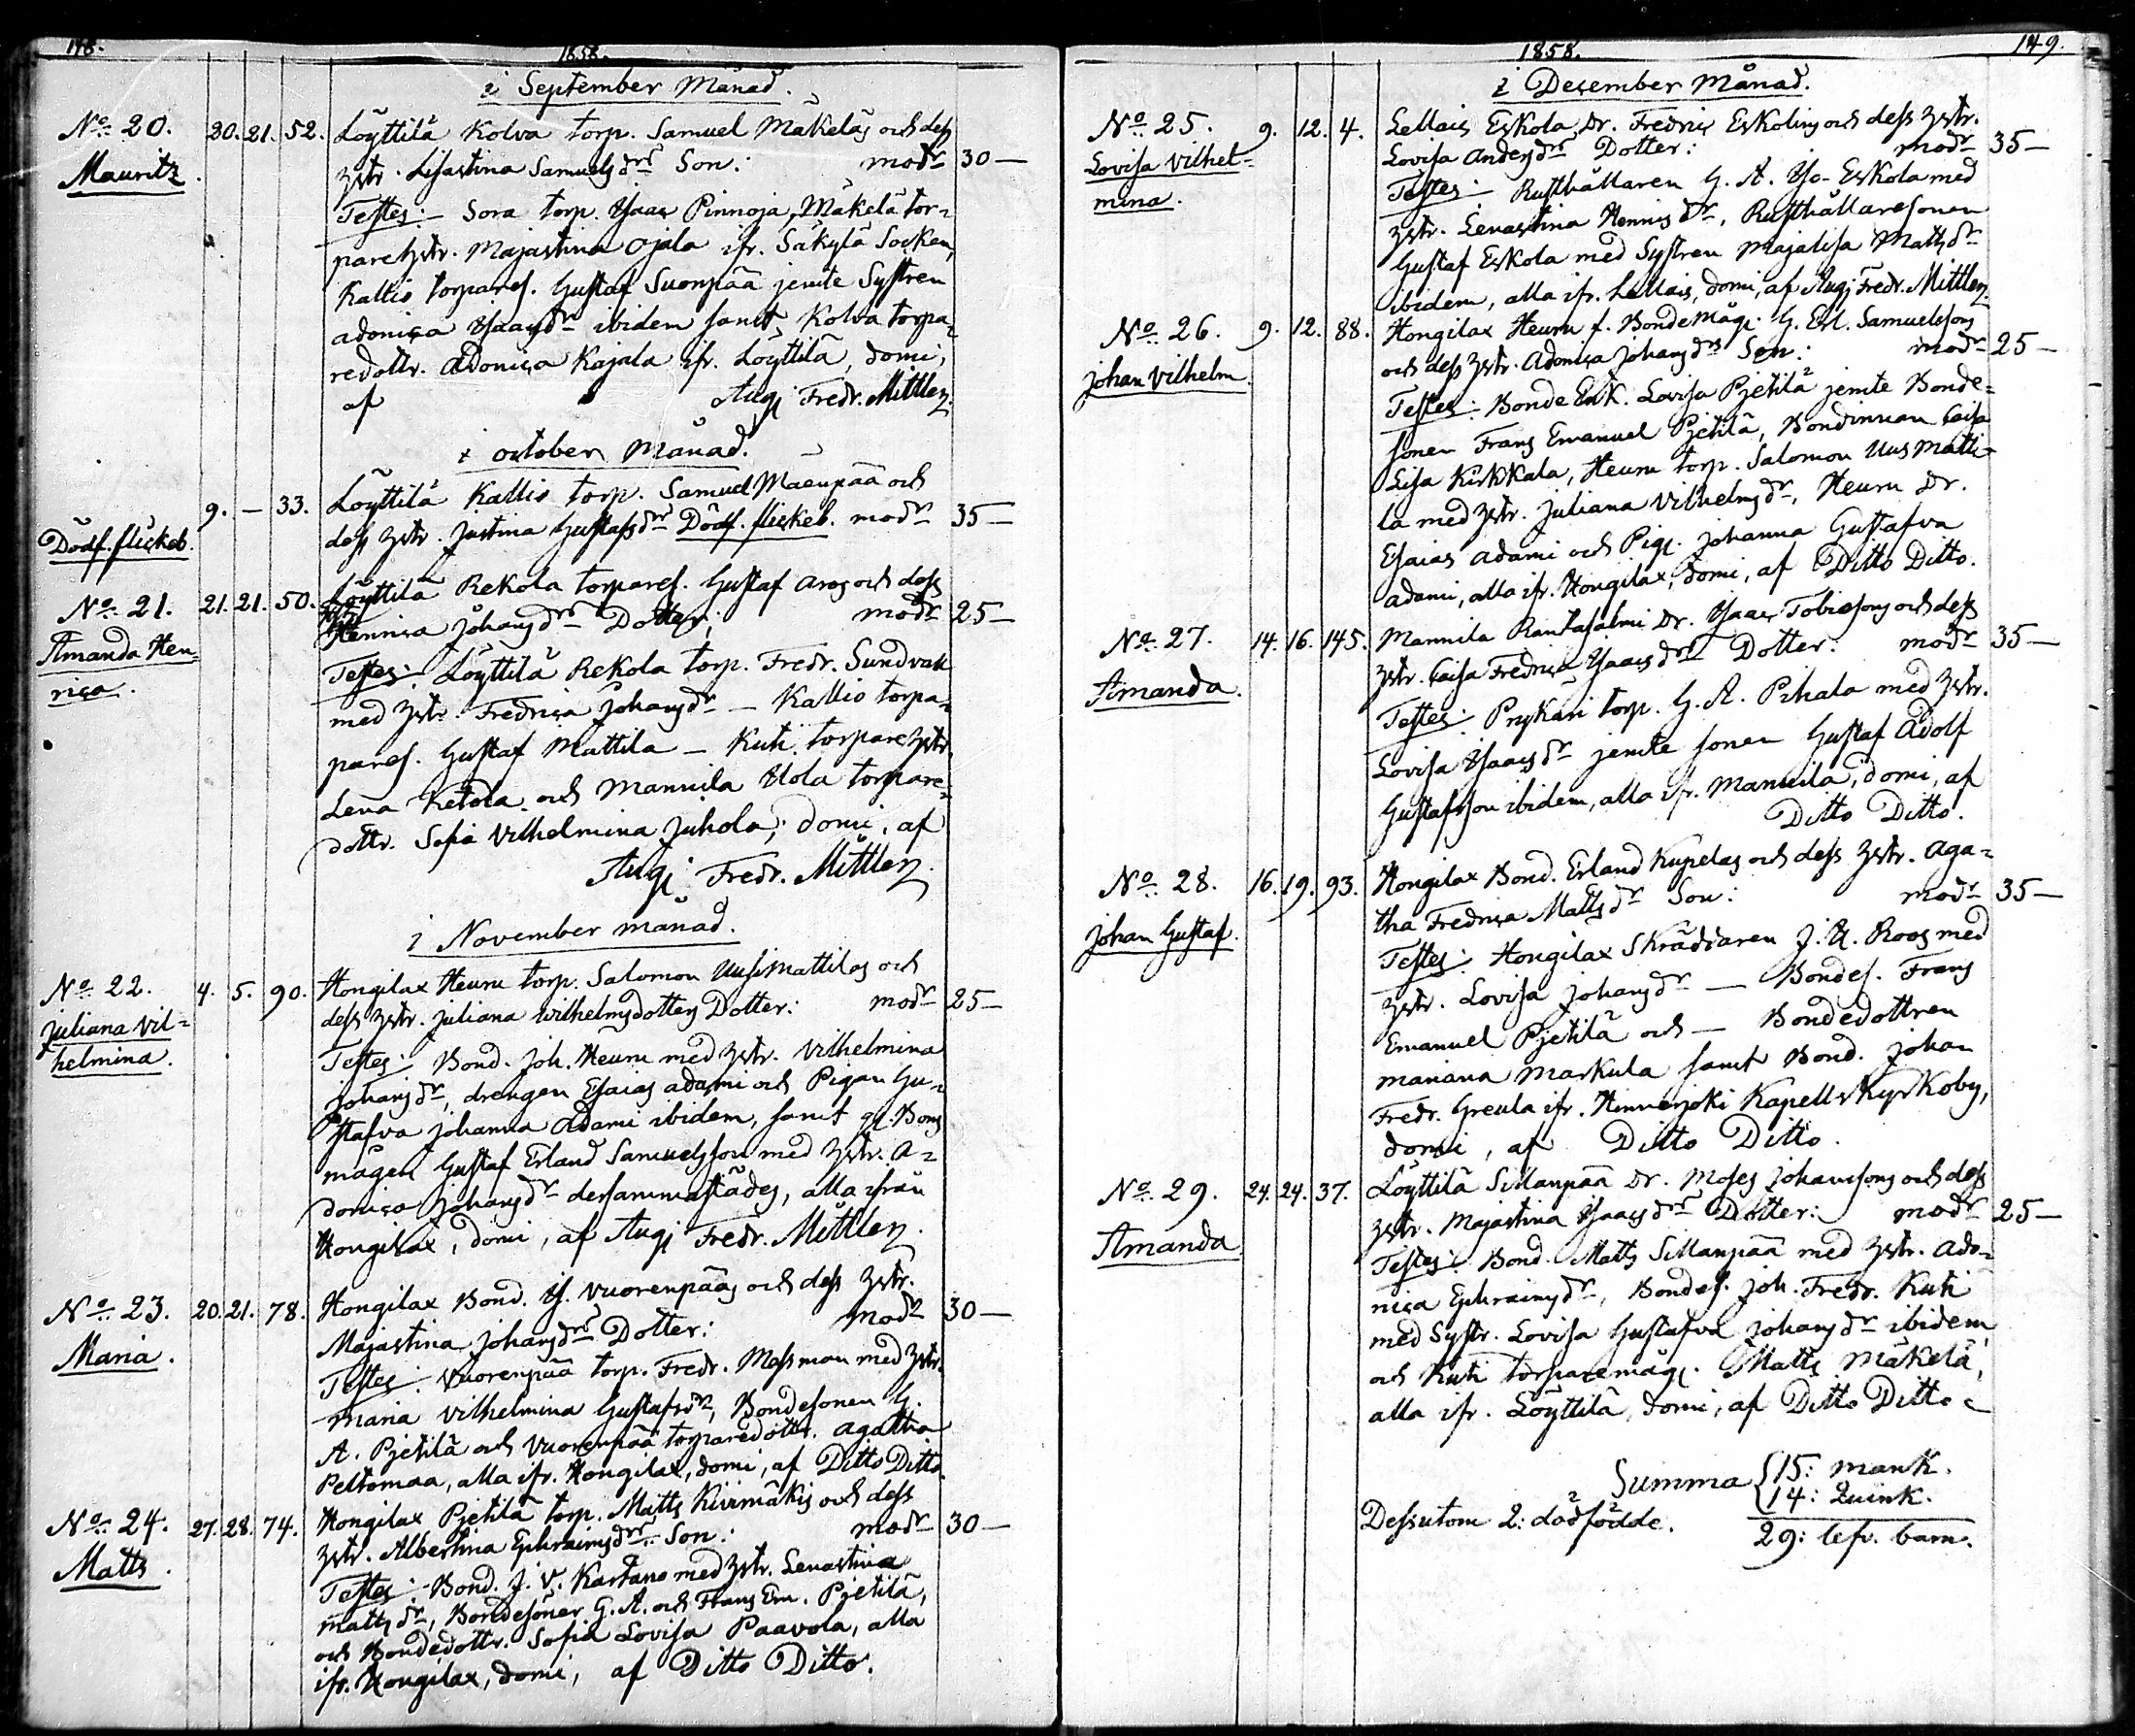 148.
1858.
i September Månad.
No 20. 20. 21. 52. Löyttilä Kolva torp. Samuel Mäkeläs och dess
Mauritz. hstr. Lisastina Samuelsdrs Son: modr 30 —
Testes: — Sora torp. Isaac Pinnoja, Mäkelä tor=
parehstr. Majastina Ojala ifr. Säkylä Socken,
Kallio torpares. Gustaf Suonpää jemte Systren
adonica Isaacsdr ibidem samt Kolva torpa=
redottr. Adonica Kajala ifr. Löyttilä, domi,
af Augj Fredr. Mittler.
i october månad.
9. — 33. Löyttilä Kallio torp. Samuel Mäenpää och
Dödf. flickeb. dess hstr. Justina Gustafsdrs Dödf. flickeb. modr 35 —
No 21. 21. 21. 50. Löyttilä Rekola torpares. Gustaf Aros och dess
Amanda Hen= hstr Hennica Johansdrs Dotter; modr 25 —
rica. Testes: Löyttilä Rekola torp. Fredr. Sundvall
med hstr. Fredrica Johansdr — Kallio torpa=
pares. Gustaf Mattila — Kuti torparehstr.
Lena Ketola och Mannila Uola torpare=
dottr. Sofia Vilhelmina Juhola, domi, af
Augj Fredr. Mittler.
i November månad.
No 22. 4. 5. 90. Hongilax Heuru torp. Salomon Uusimattilas och
Juliana Vil= dess hstr. Juliana Wilhelmsdotters Dotter: modr 25 —
helmina. Testes: Bond. Joh. Heuru med hstr. Vilhelmina
Johansdr, drengen Esaias Adami och Pigan Gu=
stafva Johanna Adami ibidem, samt gl. Bons
mågen Gustaf Erland Samuelsson med hstr. A=
donica Johansdr dersammastädes, alla ifrån
Hongilax, domi, af Augj Fredr. Mittler.
No 23. 20. 21. 78. Hongilax Bond. Is. Vuorenpääs och dess hstr.
Maria. Majastina Johansdrs Dotter: modr 30 —
Testes: Vuorenpää torp. Fredr. Messman med hstr.
Maria Vilhelmina Gustafsdr, Bondesonen G.
A. Pjetilä och Vuorenpää torparedottr. Agatha
Peltomaa, alla ifr. Hongilax, domi, af Ditto Ditto.
No 24. 27. 28. 74. Hongilax Pjetilä torp. Matts Kivimäkis och dess
Matts. hstr. Albertina Ephraimsdrs Son: modr 30 —
Testes: Bond. J. V. Kartano med hstr. Lenastina
Mattsdr, Bondesöner G. A. och Frans Em. Pjetilä,
och Bondedottr. Sofia Lovisa Paavola, alla
ifr. Hongilax, domi, af Ditto Ditto.
1858. 149.
i December Månad.
No 25. 9. 12. 4. Lellais Eskola, Dr. Fredric Eskolins och dess hstr.
Lovisa Vilhel= Lovisa Andersdrs Dotter: modr 35 —
mina. Testes: — Rusthållaren G. A. Iso-Eskola med
hstr. Lenastina Hennicsdr, Rusthållaresonen
Gustaf Eskola med Systren Majalisa Mattsdr
ibidem, alla ifr. Lellais, domi, af Augj Fredr. Mittler.
No 26. 9. 12. 88. Hongilax Heuru f. Bondemåg. G. Erl. Samuelssons
Johan Vilhelm. och dess hstr. Adonica Johansdrs Son: modr 25 —
Testes: Bonde Enk. Lovisa Pjetilä jemte Bonde=
sonen Frans Emanuel Pjetilä, Bondinnan Caisa
Lisa Kirkkala, Heuru torp. Salomon Uusmatti=
la med hstr. Juliana Vilhelmsdr, Heuru Dr.
Esaias Adami och Pig. Johanna Gustafva
Adami, alla ifr. Hongilax, domi, af Ditto Ditto.
No 27. 14. 16. 145. Mannila Rantasalmi Dr. Isaac Tobiesons och dess
Amanda. hstr. Caisa Fredrica Isaacsdrs Dotter: modr 35 —
Testes: Prykäri torp. G. A. Pihala med hstr.
Lovisa Isaacsdr jemte sonen Gustaf Adolf
Gustafsson ibidem, alla ifr. Mannila, domi, af
Ditto Ditto.
No 28. 16. 19. 93. Hongilax Bond. Erland Kupelas och dess hstr. Aga=
Johan Gustaf. tha Fredrica Mattsdr Son: modr 35 —
Testes: Hongilax Skräddaren J. U. Roos med
hstr. Lovisa Johansdr — Bondes. Frans
Emanuel Pjetilä och — Bondedottren
Mariana Markula samt Bond. Johan
Fredr. Greula ifr. Hinnerjoki Kapells Kyrkoby,
domi, af Ditto Ditto.
No 29. 24. 24. 37. Löyttilä Sillanpää Dr. Moses Johanssons och dess
Amanda hstr. Majastina Isaacsdrs Dotter: modr 25 —
Testes: Bond. Matts Sillanpää med hstr. Ado=
nica Ephraimsdr, Bondes. Joh. Fredr. Kuti
med Systr. Lovisa Gustafva Johansdr ibidem
och Kuti torparemåg. Matts Mäkelä,
alla ifr. Löyttilä, domi, af Ditto Ditto.
Summa {15: mank.
14: Quink.
Dessutom 2: dödfödde. 29: lefv. barn.